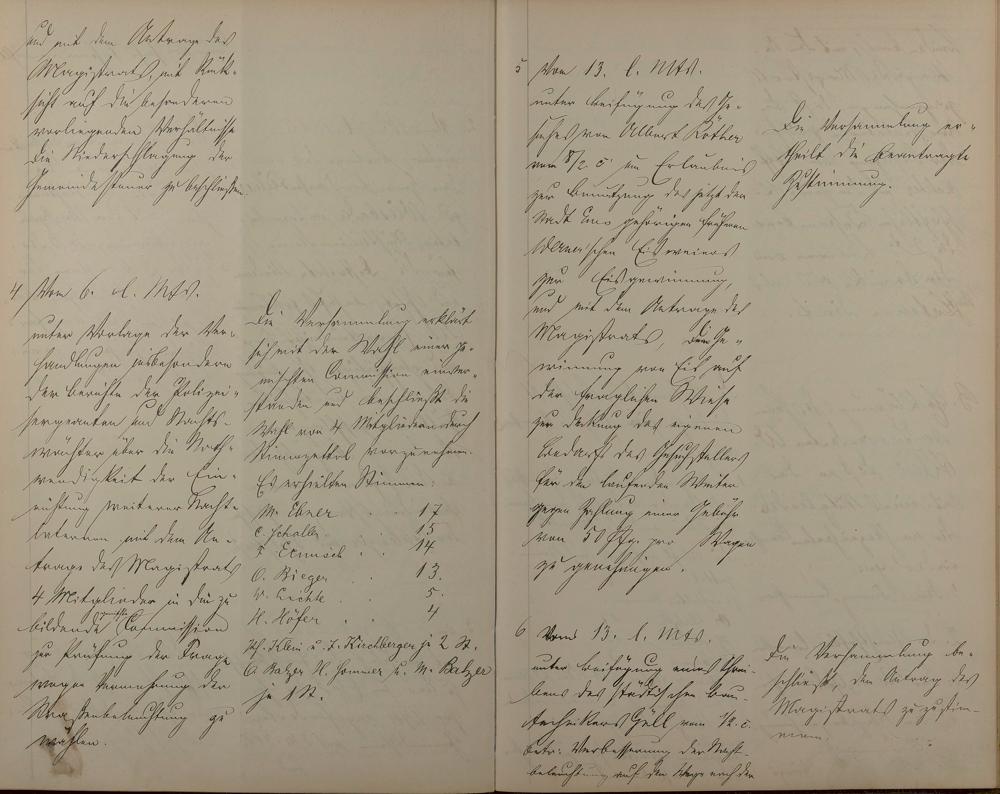 und mit dem Antrage des
Magistrats, mit Rück-
sicht auf die besonderen
vorliegenden Verhältnisse
die Niederschlagung der
Gemeindesteuer zu beschließen.
4 Vom 6. l. Mts.
unter Vorlage der Ver-
handlungen insbesondere
der Berichte der Polizei-
sergeanten und Nachts-
wächter über die Noth-
wendigkeit der Ein-
richtung weiterer Nacht-
laternen mit dem An-
trage des Magistrats
4 Mitglieder in die zu
bildende gemischte Commission
zur Prüfung der Frage
wegen Vermehrung der
Straßenbeleuchtung zu
wählen.
Die Versammlung erklärt
sich mit der Wahl einer ge-
mischten Commission einver-
standen und beschließt die
Wahl von 4 Mitgliedern durch
Stimmzettel vorzunehmen.
Es erhielten Stimmen:
M. Ebner . . 17
C. Schaller . . 15
F. . . 14
O. Rieger . . 13.
W. Lichte . . 5.
H. Höfer . . 4
Ph. Klein u. J. Kirchberger je 2 St.
H. Sommer u. M. Balzer
je 1 St.
5 Vom 13. l. Mts.
unter Beifügung des Ge-
suches von Albert Köther
vom 8/2. c. um Erlaubnis
zur Benutzung des jetzt der
Stadt gehörigen früheren
Eisweiers
zur Eisgewinnung,
und mit dem Antrage des
Magistrats, die Ge-
winnung von Eis auf
der fraglichen Wiese
zur Deckung des eigenen
Bedarfs des Gesuchstellers
für den laufenden Winter
gegen Zahlung einer Gebühr
von 50 Pfg. pro Wagen
zu genehmigen.
Die Versammlung er-
theilt die beantragte
Zustimmung.
6 Vom 13. l. Mts.
unter Beifügung eines Schrei-
bens des städtischen Bau-
technikers Göll vom 1/2. c.
betr: Verbesserung der Nacht-
beleuchtung auf dem Wege nach der
Die Versammlung be-
schließt, dem Antrag des
Magistrats zuzustim-
men.